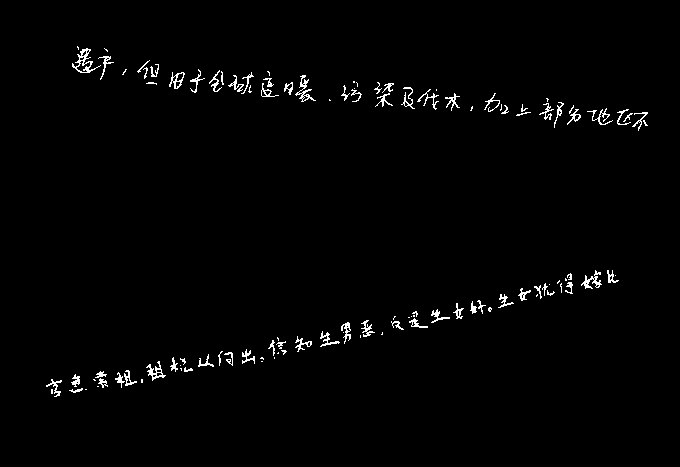 遗产，但由于全球变暖、污染及伐木，加上部分地区不
官急索租，租税从何出。信知生男恶，反是生女好。生女犹得嫁比